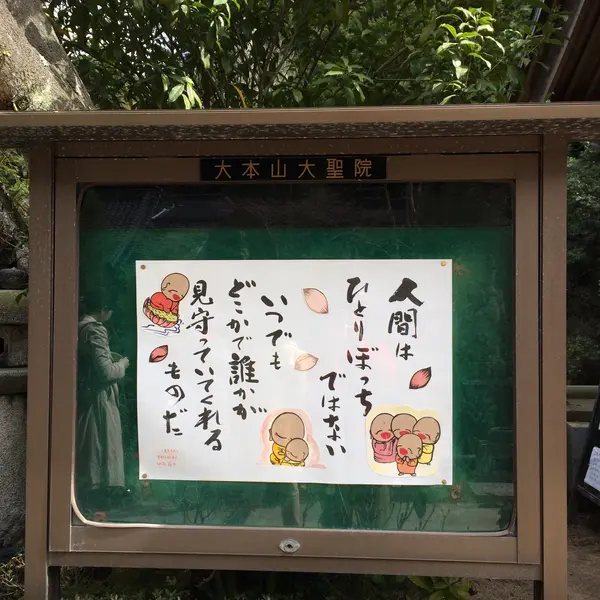 大本山大聖院
人間は
ひとりぼっち
ではない
いつでも
どこかで誰かが
見守っていてくれる
ものだ